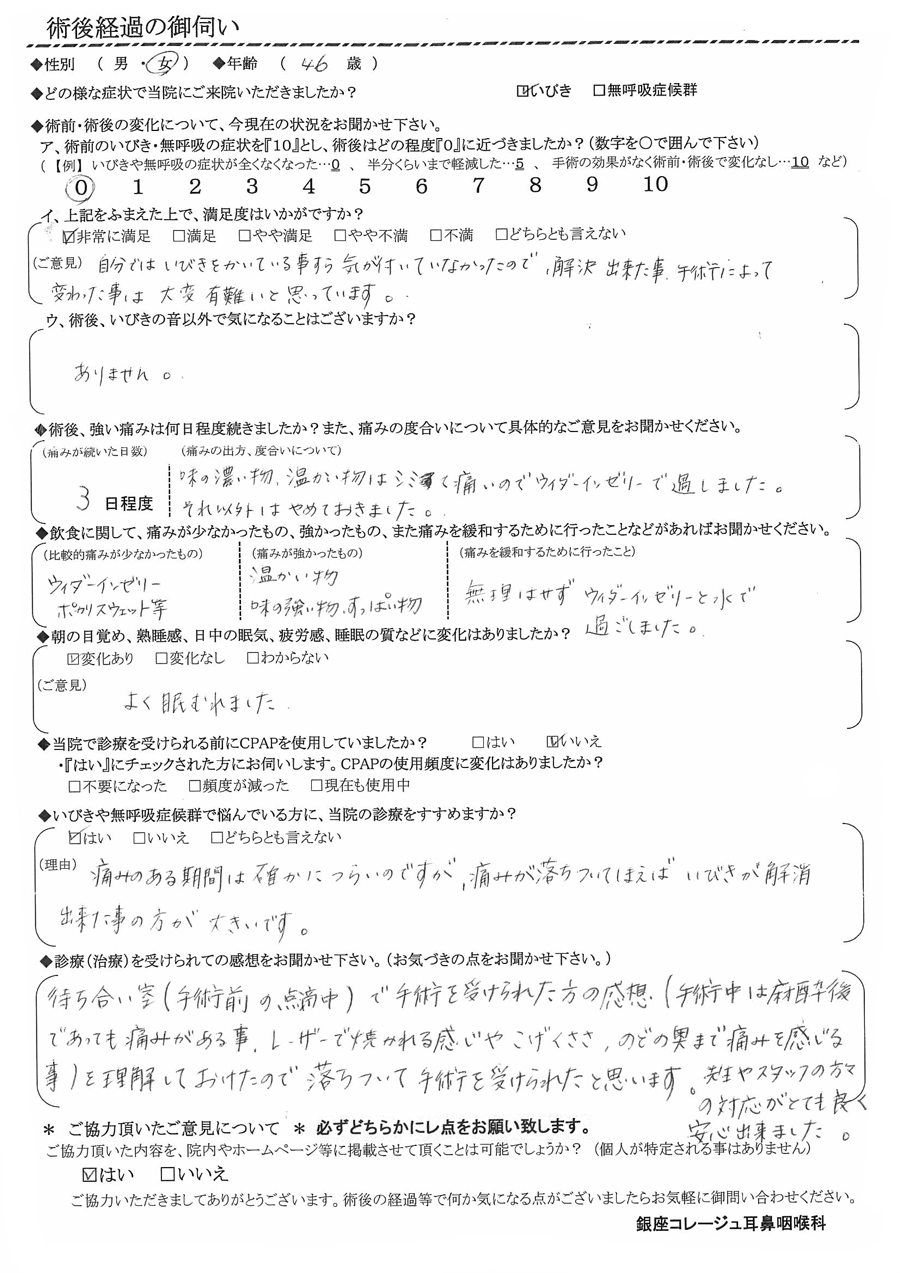 術後経過の御伺い
◆性別　（ 男 ・ 女 ）　◆年齢　（　46　歳　）
◆どの様な症状で当院にご来院いただきましたか？　☑いびき　□無呼吸症候群
◆術前・術後の変化について、今現在の状況をお聞かせ下さい。
ア、術前のいびき・無呼吸の症状を『10』とし、術後はどの程度『0』に近づきましたか？（数字を〇で囲んで下さい）
（ 【例】 いびきや無呼吸の症状が全くなくなった…0 、 半分くらいまで軽減した…5 、 手術の効果がなく術前・術後で変化なし…10 など）
0　1　2　3　4　5　6　7　8　9　10
イ、上記をふまえた上で、満足度はいかがですか？
☑非常に満足　□満足　□やや満足　□やや不満　□不満　□どちらとも言えない
（ご意見） 自分ではいびきをかいている事すら気が付いていなかったので、解決出来た事、手術によって
変わった事は 大変 有難いと思っています。
ウ、術後、いびきの音以外で気になることはございますか？
ありません。
◆術後、強い痛みは何日程度続きましたか？また、痛みの度合いについて具体的なご意見をお聞かせください。
（痛みが続いた日数）　（痛みの出方、度合いについて）
味の濃い物、温かい物はシミて痛いのでウィダーインゼリーで過しました。
3 日程度
それ以外はやめておきました。
◆飲食に関して、痛みが少なかったもの、強かったもの、また痛みを緩和するために行ったことなどがあればお聞かせください。
（比較的痛みが少なかったもの）　（痛みが強かったもの）　（痛みを緩和するために行ったこと）
ウィダーインゼリー　温かい物　無理はせず ウィダーインゼリーと水で
ポカリスウェット等　味の強い物、すっぱい物　過ごしました。
◆朝の目覚め、熟睡感、日中の眠気、疲労感、睡眠の質などに変化はありましたか？
☑変化あり　□変化なし　□わからない
（ご意見）
よく眠むれました
◆当院で診療を受けられる前にCPAPを使用していましたか？　□はい　☑いいえ
・『はい』にチェックされた方にお伺いします。CPAPの使用頻度に変化はありましたか？
□不要になった　□頻度が減った　□現在も使用中
◆いびきや無呼吸症候群で悩んでいる方に、当院の診療をすすめますか？
☑はい　□いいえ　□どちらとも言えない
（理由） 痛みのある期間は確かにつらいのですが、痛みが落ちついてしまえば いびきが解消
出来た事の方が 大きいです。
◆診療（治療）を受けられての感想をお聞かせ下さい。（お気づきの点をお聞かせ下さい。）
待ち合い室（手術前の点滴中）で手術を受けられた方の感想（手術中は麻酔後
であっても痛みがある事、レーザーで焼かれる感じや こげくささ、のどの奥まで痛みを感じる
事）を理解しておけたので 落ちついて 手術を受けられたと思います。先生やスタッフの方々
の対応がとても良く
安心出来ました。
＊ ご協力頂いたご意見について ＊ 必ずどちらかにレ点をお願い致します。
ご協力頂いた内容を、院内やホームページ等に掲載させて頂くことは可能でしょうか？ （個人が特定される事はありません）
☑はい　□いいえ
ご協力いただきましてありがとうございます。術後の経過等で何か気になる点がございましたらお気軽に御問い合わせください。
銀座コレージュ耳鼻咽喉科